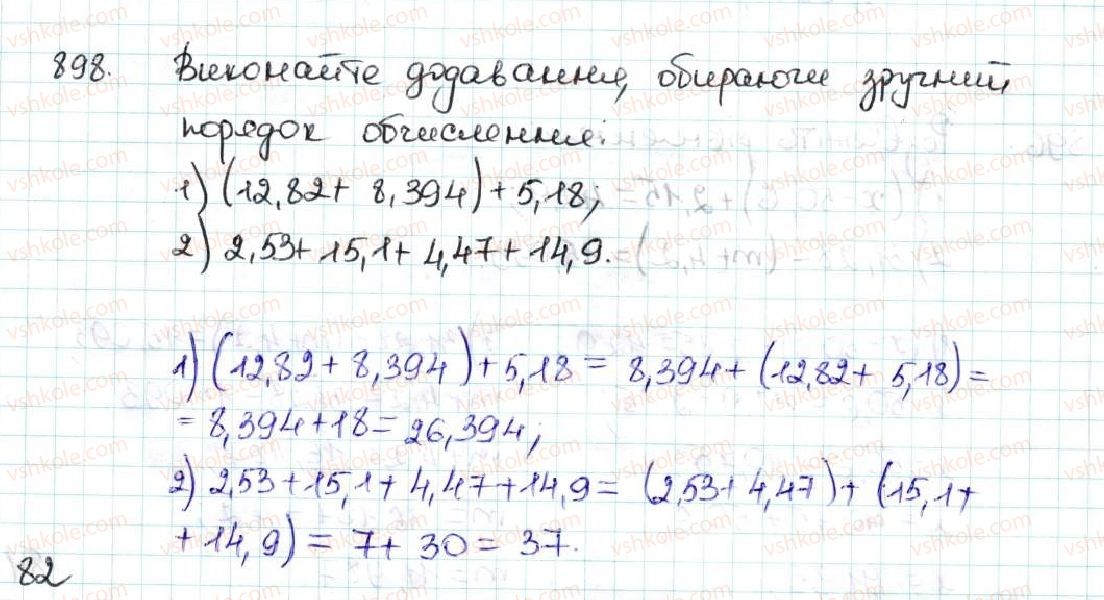 898. Виконайте додавання, обираючи зручний
порядок обчислення:
1) (12,82 + 8,394) + 5,18;
2) 2,53 + 15,1 + 4,47 + 14,9.
1) (12,82 + 8,394) + 5,18 = 8,394 + (12,82 + 5,18) =
= 8,394 + 18 = 26,394;
2) 2,53 + 15,1 + 4,47 + 14,9 = (2,53 + 4,47) + (15,1 +
+ 14,9) = 7 + 30 = 37.
82
vshkole.com